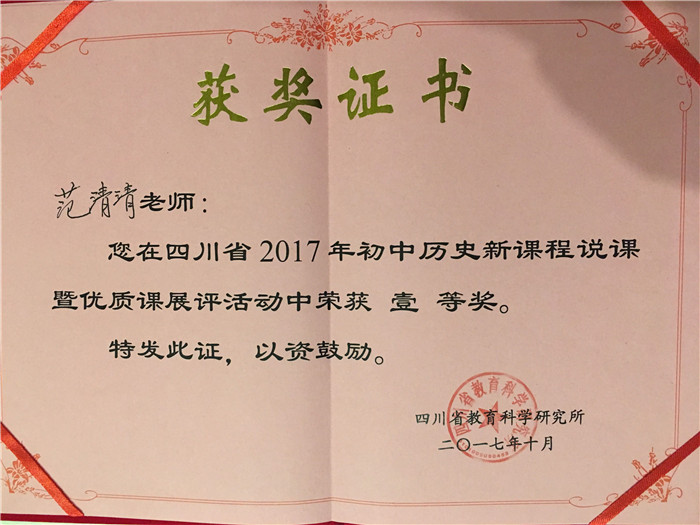 获奖证书
范清清老师：
您在四川省2017年初中历史新课程说课
暨优质课展评活动中荣获 壹 等奖。
特发此证，以资鼓励。
四川省教育科学研究所
二〇一七年十月